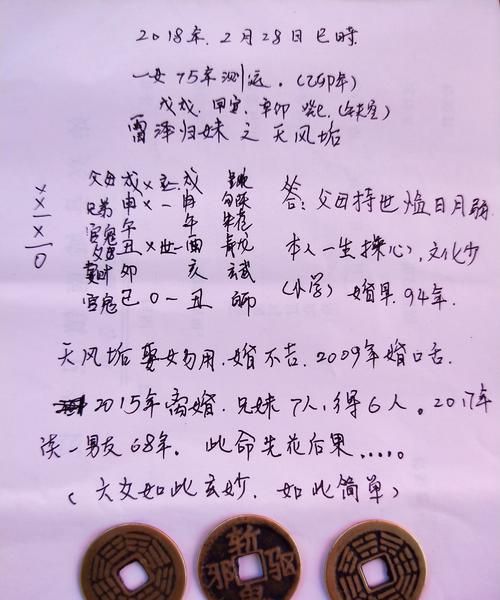 2018年.2月28日巳时
一女75年测运.(乙卯年)
戊戌.甲寅.辛卯 癸巳.(午未空)
雷泽归妹之天风垢
父母戌×戌
兄弟申×一申
官鬼午 午
父母丑×世一酉
妻财卯 亥 玄武
官鬼巳0一丑
答:父母持世值日月弱
本人一生操心),文化少
(小学) 婚早.94年.
天风垢娶女勿用.婚不吉.2009年婚口舌.
2015年离婚.兄妹7人,得6人。2017年
谈一男友68年. 此命先花后果.....
(六爻如此玄妙.如此简单)
斩 驱 邪